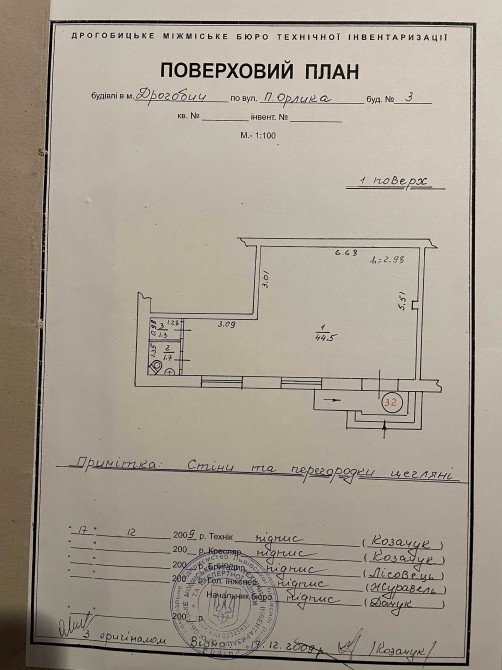 ДРОГОБИЦЬКЕ МІЖМІСЬКЕ БЮРО ТЕХНІЧНОЇ ІНВЕНТАРИЗАЦІЇ
ПОВЕРХОВИЙ ПЛАН
будівлі в м. Дрогобич по вул. П. Орлика буд. № 3
кв. № інвент. №
М.- 1:100
1 поверх
6.68 h=2.98
3.01
5.51
3.09
1 44.5
0.98 3 1.3 1.28
1.35 2 1.7
32
Примітка: Стіни та перегородки цегляні
" 17 " 12 2009 р. Технік підпис (Козачук)
" " 200 р. Кресляр підпис (Козачук)
" " 200 р. Бригадир підпис (Лісовець)
" " 200 р. Гол. інженер підпис (Журавель)
Начальник бюро підпис (Дачук)
" " 200 р.
З оригіналом 12.2009 (Козачук)